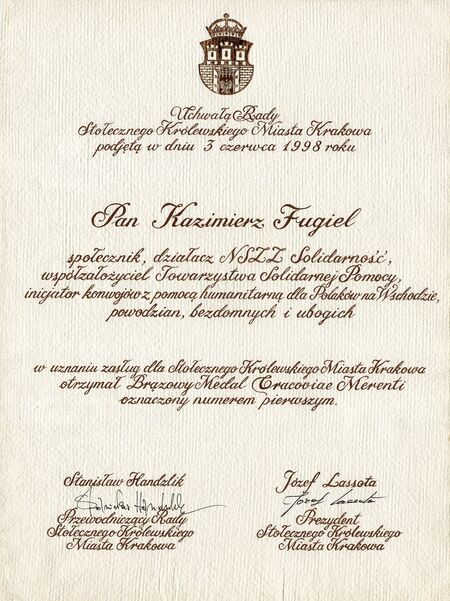 Uchwałą Rady
Stołecznego Królewskiego Miasta Krakowa
podjętą w dniu 3 czerwca 1998 roku
Pan Kazimierz Fugiel
społecznik, działacz NSZZ Solidarność,
współzałożyciel Towarzystwa Solidarnej Pomocy,
inicjator konwojów z pomocą humanitarną dla Polaków na Wschodzie,
powodzian, bezdomnych i ubogich
w uznaniu zasług dla Stołecznego Królewskiego Miasta Krakowa
otrzymał Brązowy Medal Cracoviae Merenti
oznaczony numerem pierwszym.
Stanisław Handzlik
Przewodniczący Rady
Stołecznego Królewskiego
Miasta Krakowa
Józef Lassota
Józef Lassota
Prezydent
Stołecznego Królewskiego
Miasta Krakowa